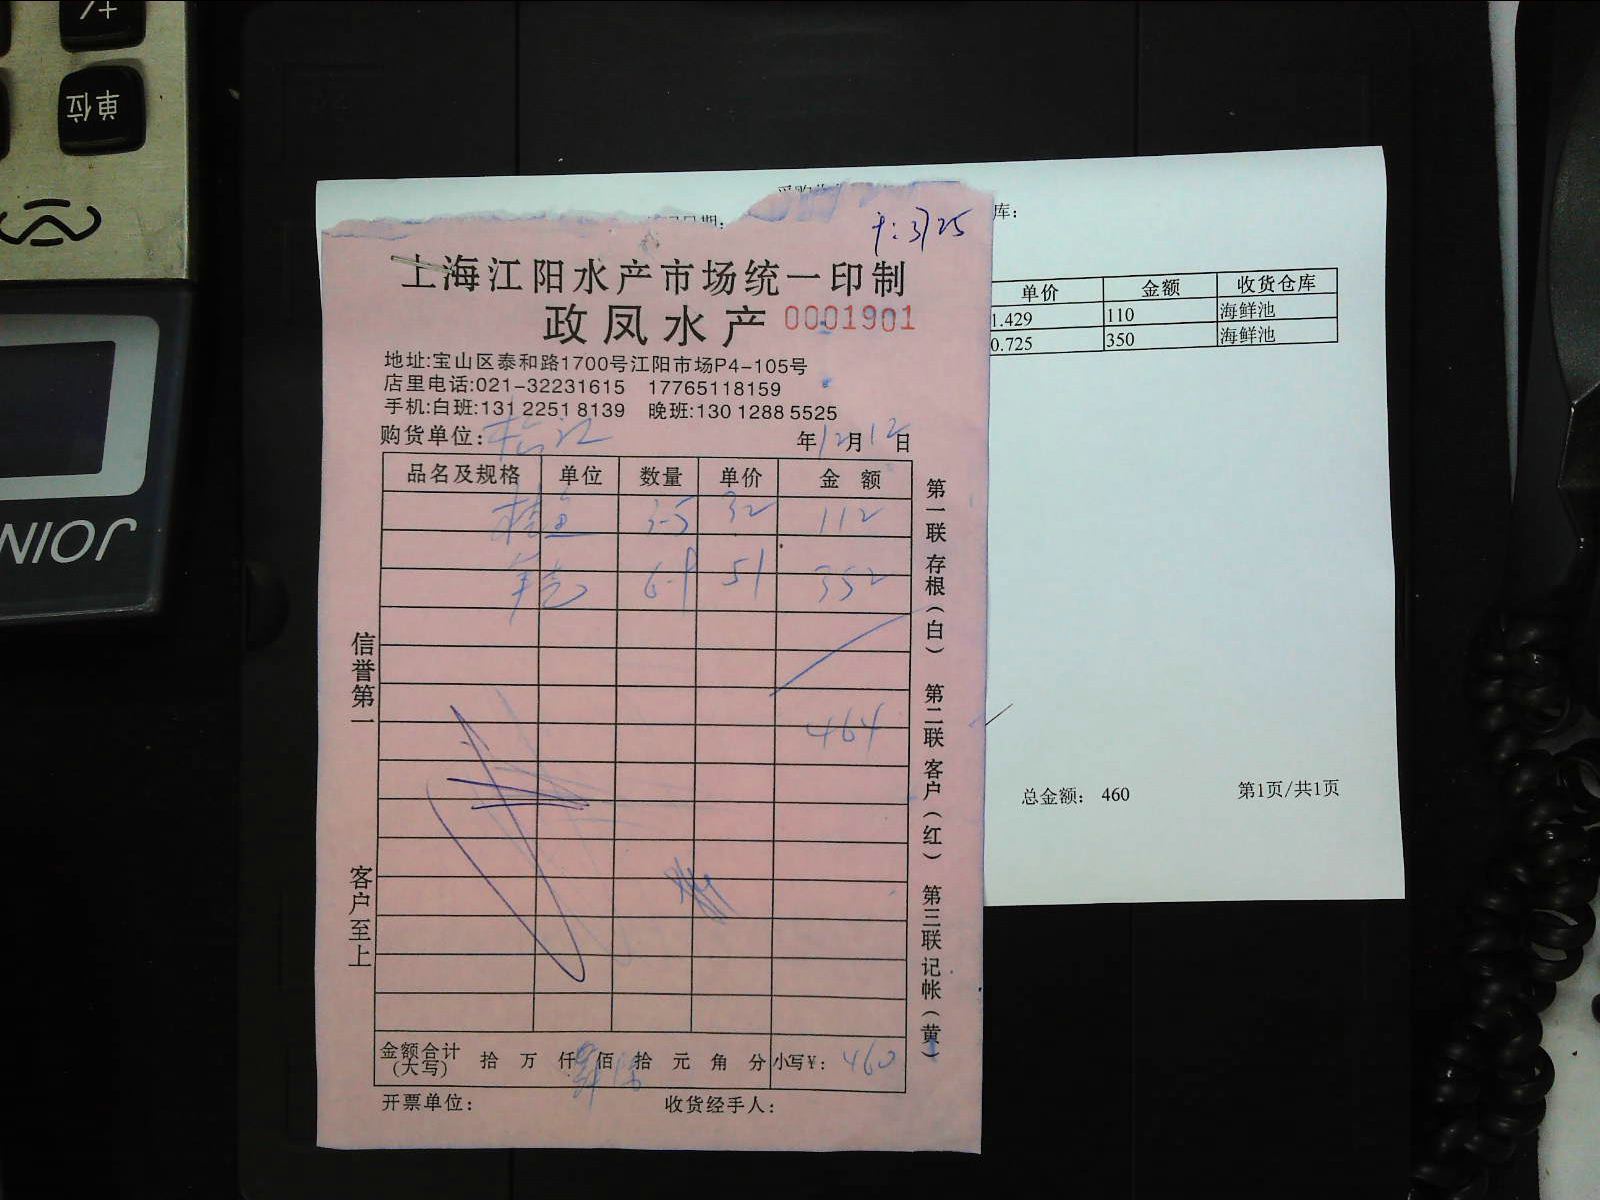 +/-
单位
JOIN
库:
单价 金额 收货仓库
1.429 110 海鲜池
0.725 350 海鲜池
总金额: 460 第1页/共1页
上海江阳水产市场统一印制
政凤水产 0001901
地址:宝山区泰和路1700号江阳市场P4-105号
店里电话:021-32231615 17765118159
手机:白班:131 2251 8139 晚班:130 1288 5525
购货单位: 松江 年12月12日
品名及规格 单位 数量 单价 金 额
桂鱼 3.5 32 112
6.9 51 352
464
信誉第一
客户至上
第一联 存根(白) 第二联 客户(红) 第三联 记帐(黄)
金额合计(大写) 拾 万 仟 佰 拾 元 角 分 小写¥: 460
开票单位: 收货经手人: